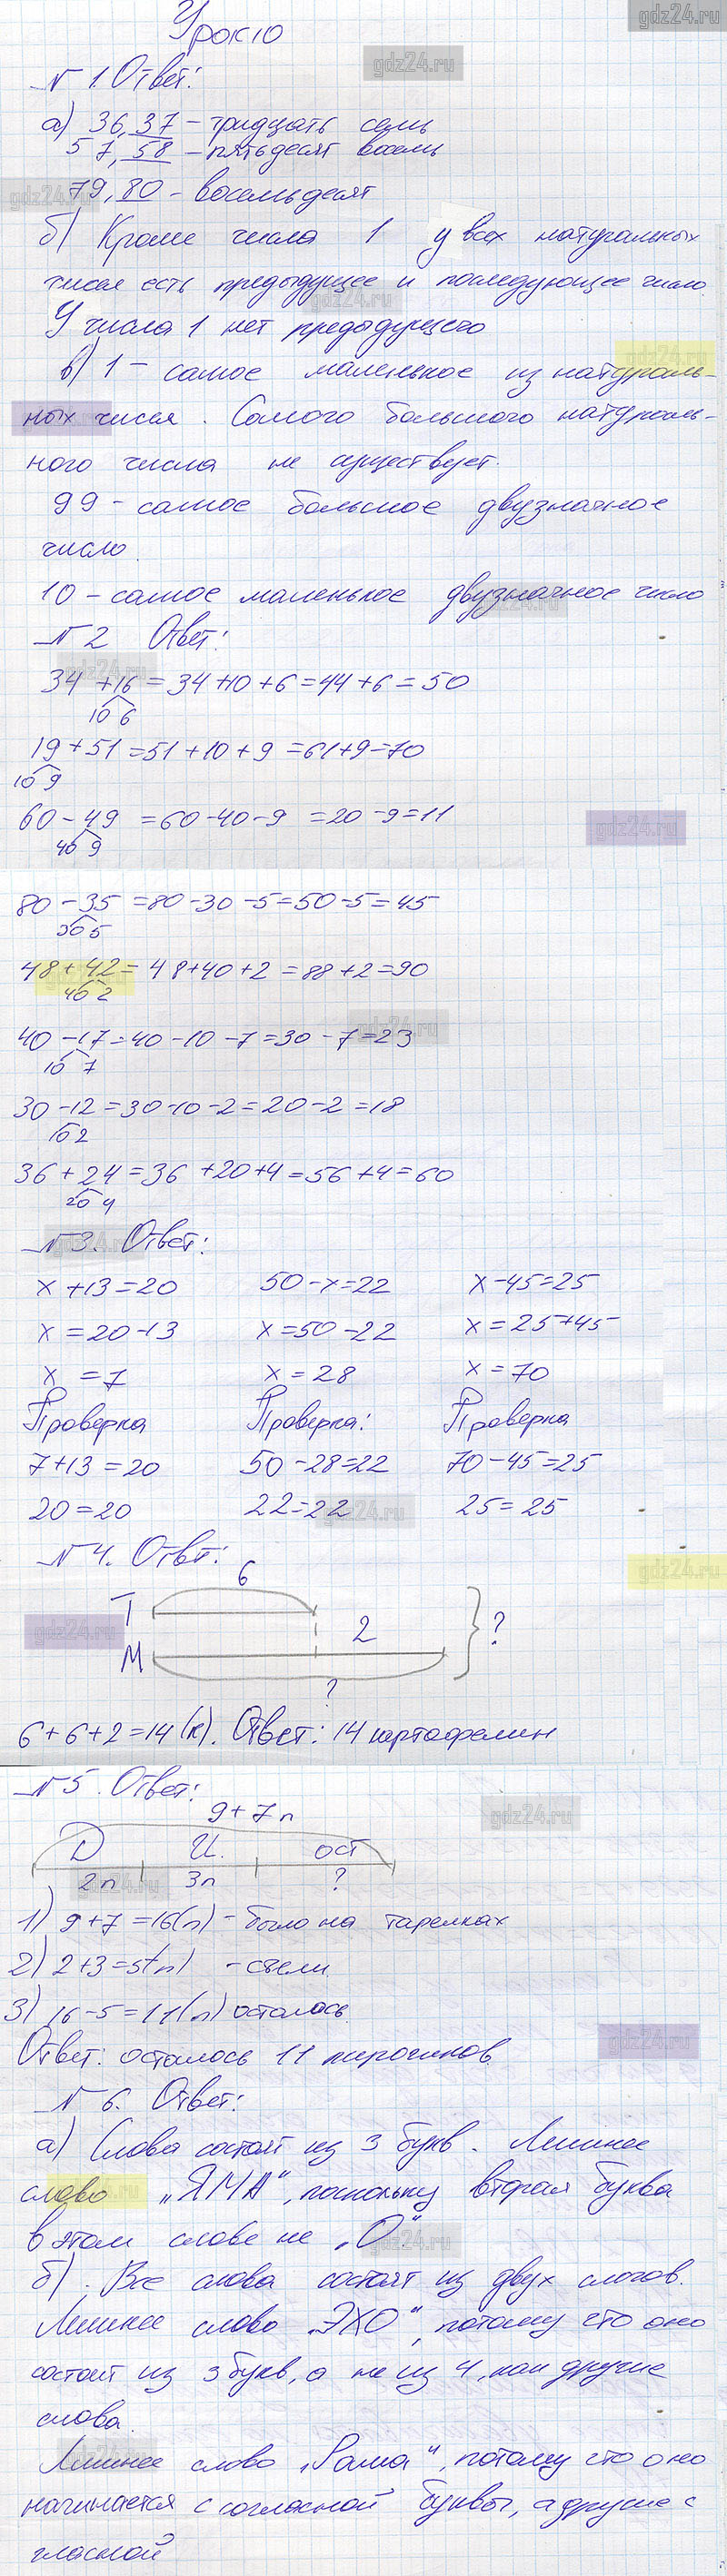 gdz24.ru
Урок 10
gdz24.ru
№ 1. Ответ:
а) 36, 37 – тридцать семь
57, 58 – пятьдесят восемь
gdz24.ru
79, 80 – восемьдесят
б) Кроме числа 1 у всех натуральных
чисел есть предыдущее и последующее число.
gdz24.ru
У числа 1 нет предыдущего
gdz24.ru
в) 1 – самое маленькое из натураль-
ных чисел. Самого большого натураль-
ного числа не существует.
99 – самое большое двузначное
число.
10 – самое маленькое двузначное число
№ 2 Ответ:
gdz24.ru
34 + 16 = 34 + 10 + 6 = 44 + 6 = 50
10 6
19 + 51 = 51 + 10 + 9 = 61 + 9 = 70
10 9
60 – 49 = 60 – 40 – 9 = 20 – 9 = 11
gdz24.ru
40 9
80 – 35 = 80 – 30 – 5 = 50 – 5 = 45
30 5
48 + 42 = 48 + 40 + 2 = 88 + 2 = 90
40 2
40 – 17 = 40 – 10 – 7 = 30 – 7 = 23
10 7
30 – 12 = 30 – 10 – 2 = 20 – 2 = 18
10 2
36 + 24 = 36 + 20 + 4 = 56 + 4 = 60
20 4
№ 3. Ответ:
x + 13 = 20 50 – x = 22 x – 45 = 25
x = 20 – 13 x = 50 – 22 x = 25 + 45
x = 7 x = 28 x = 70
Проверка Проверка: Проверка
7 + 13 = 20 50 – 28 = 22 70 – 45 = 25
20 = 20 22 = 22 25 = 25
gdz24.ru
№ 4. Ответ:
6
gdz24.ru
Т
gdz24.ru
2 ?
М
?
6 + 6 + 2 = 14 (к). Ответ: 14 картофелин
№ 5. Ответ:
9 + 7 п
gdz24.ru
Д И. ост
2п 3п ?
gdz24.ru
1) 9 + 7 = 16 (п) – было на тарелках
2) 2 + 3 = 5 (п) – съели
3) 16 – 5 = 11 (п) осталось.
gdz24.ru
Ответ: осталось 11 пирожков.
№ 6. Ответ:
а) Слова состоят из 3 букв. Лишнее
слово „ЯМА“, поскольку вторая буква
в этом слове не „О“.
gdz24.ru
б). Все слова состоят из двух слогов.
Лишнее слово „ЭХО“, потому что оно
состоит из 3 букв, а не из 4, как другие
слова.
Лишнее слово „Рама“, потому что оно
начинается с согласной буквы, а другие с
гласной